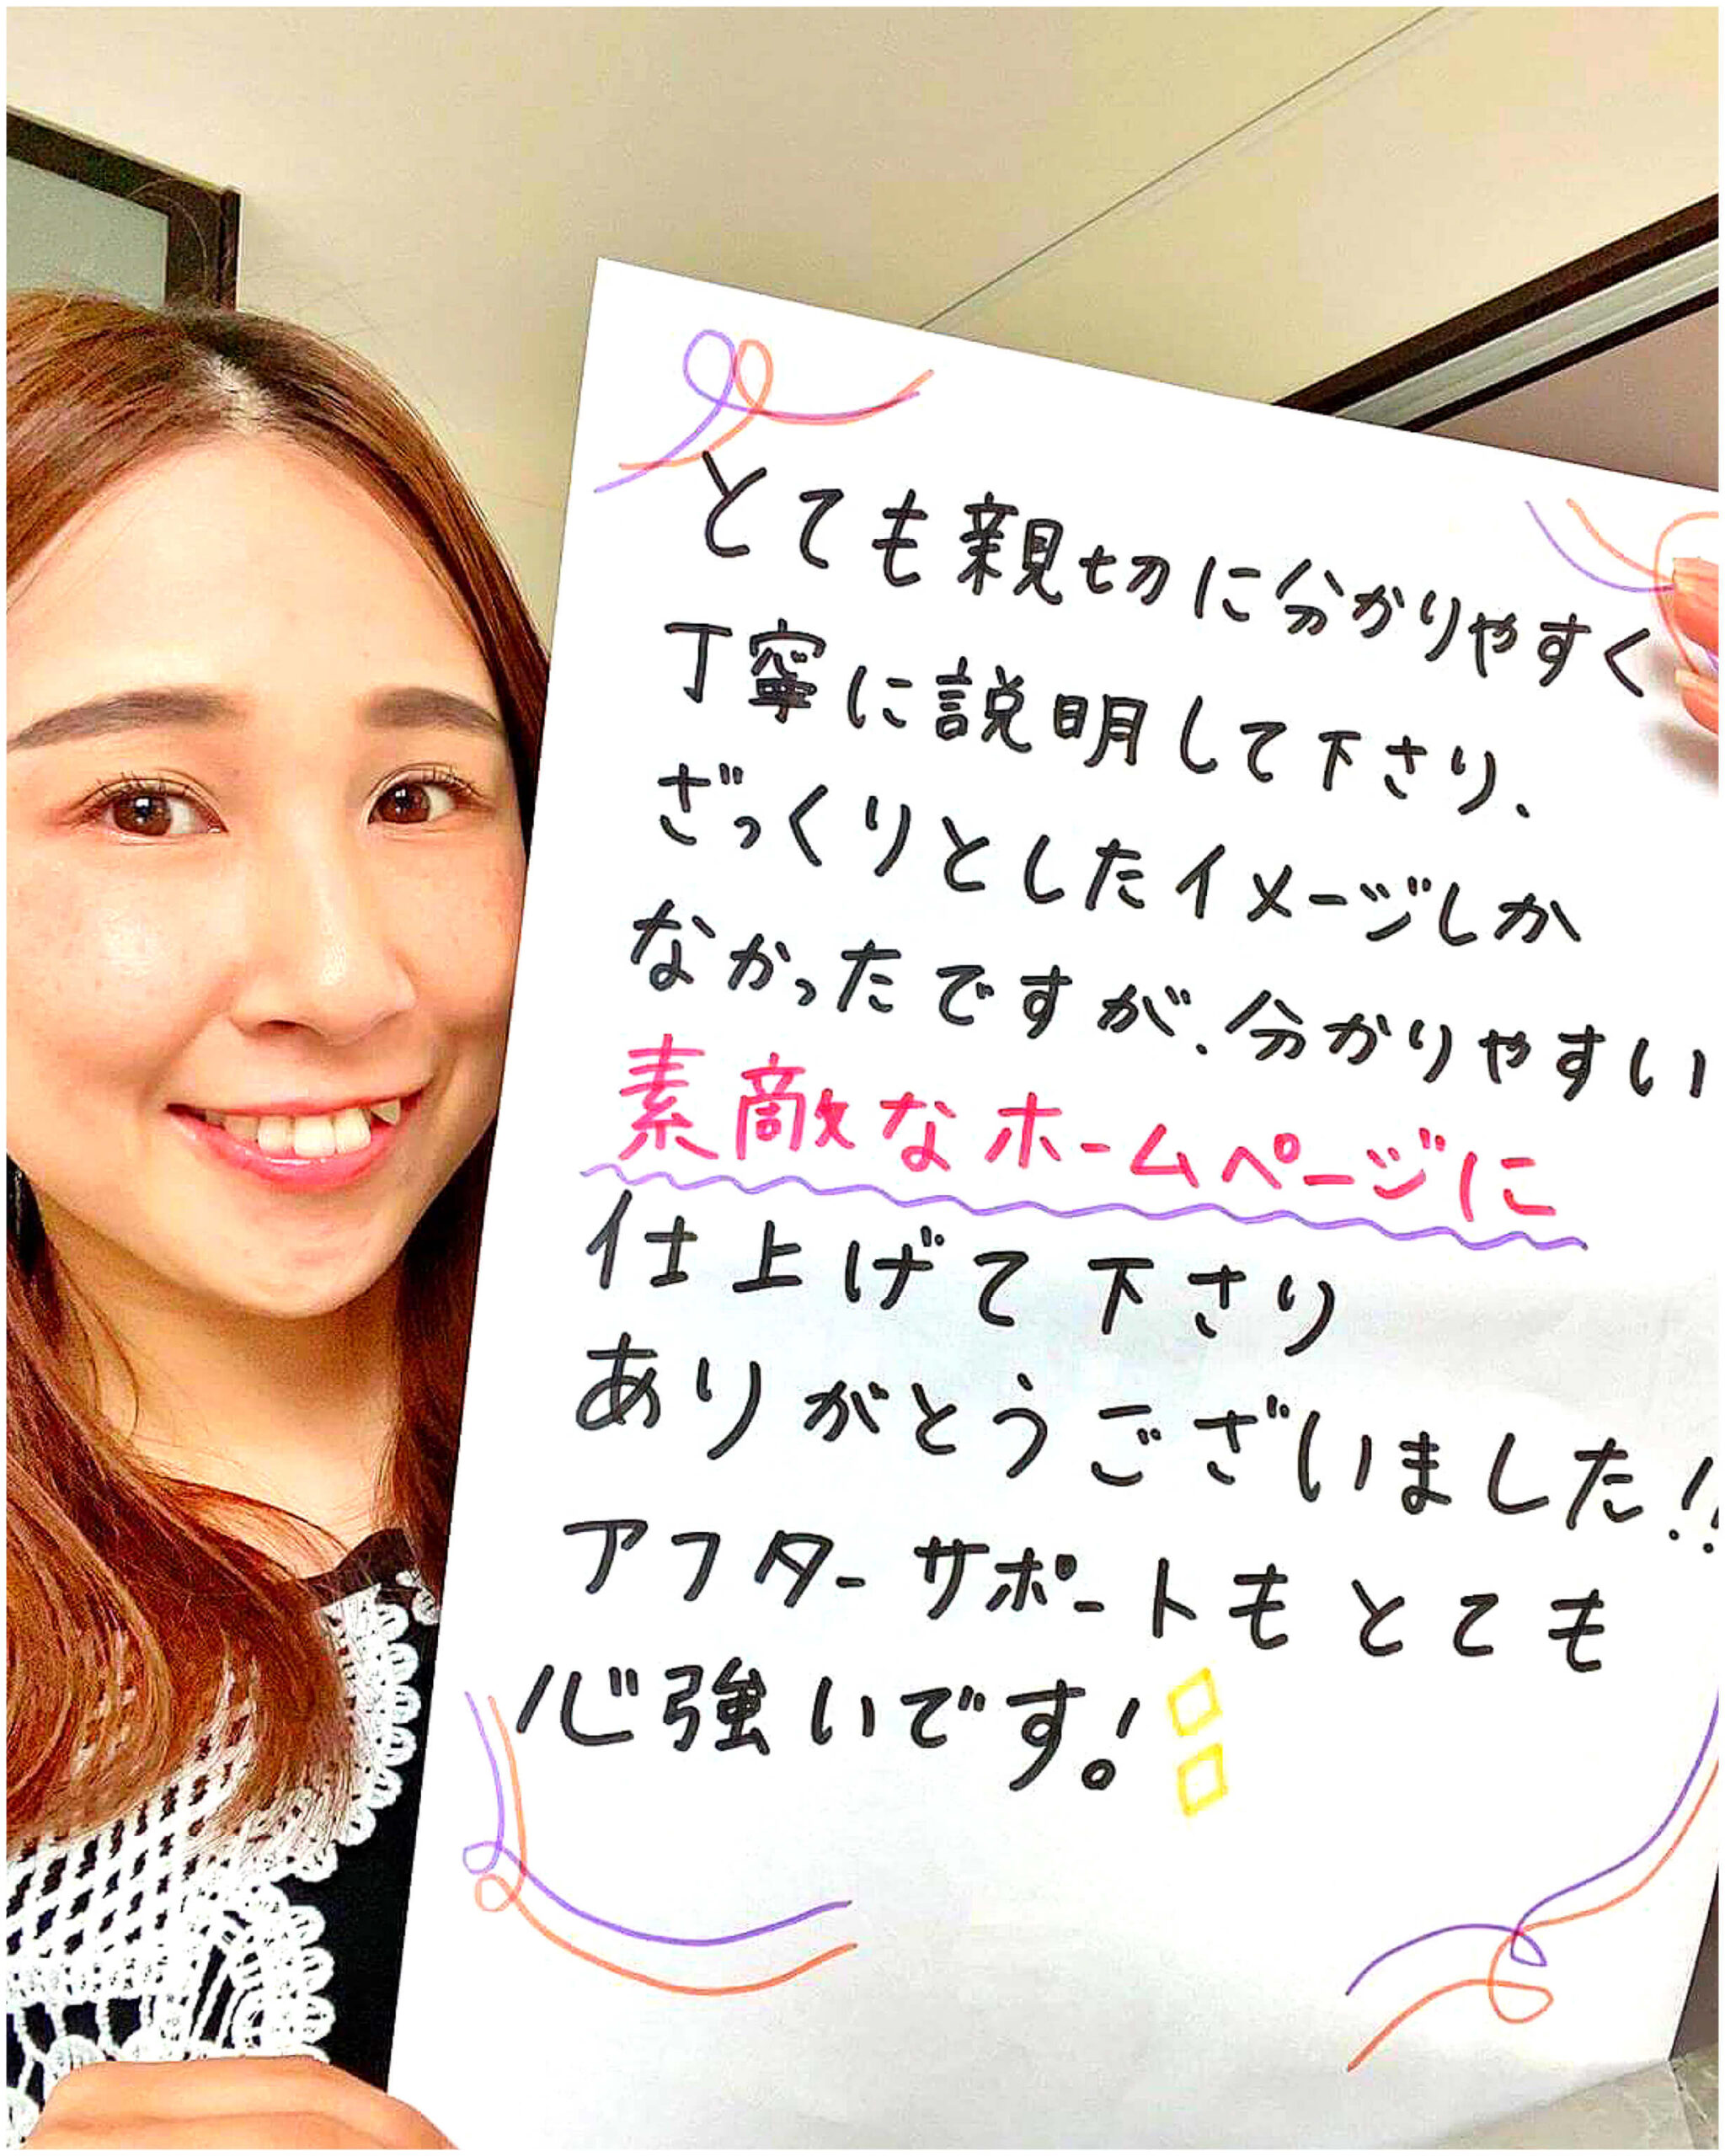 とても親切に分かりやすく
丁寧に説明して下さり、
ざっくりとしたイメージしか
なかったですが、分かりやすい
素敵なホームページに
仕上げて下さり
ありがとうございました!!
アフターサポートもとても
心強いです!